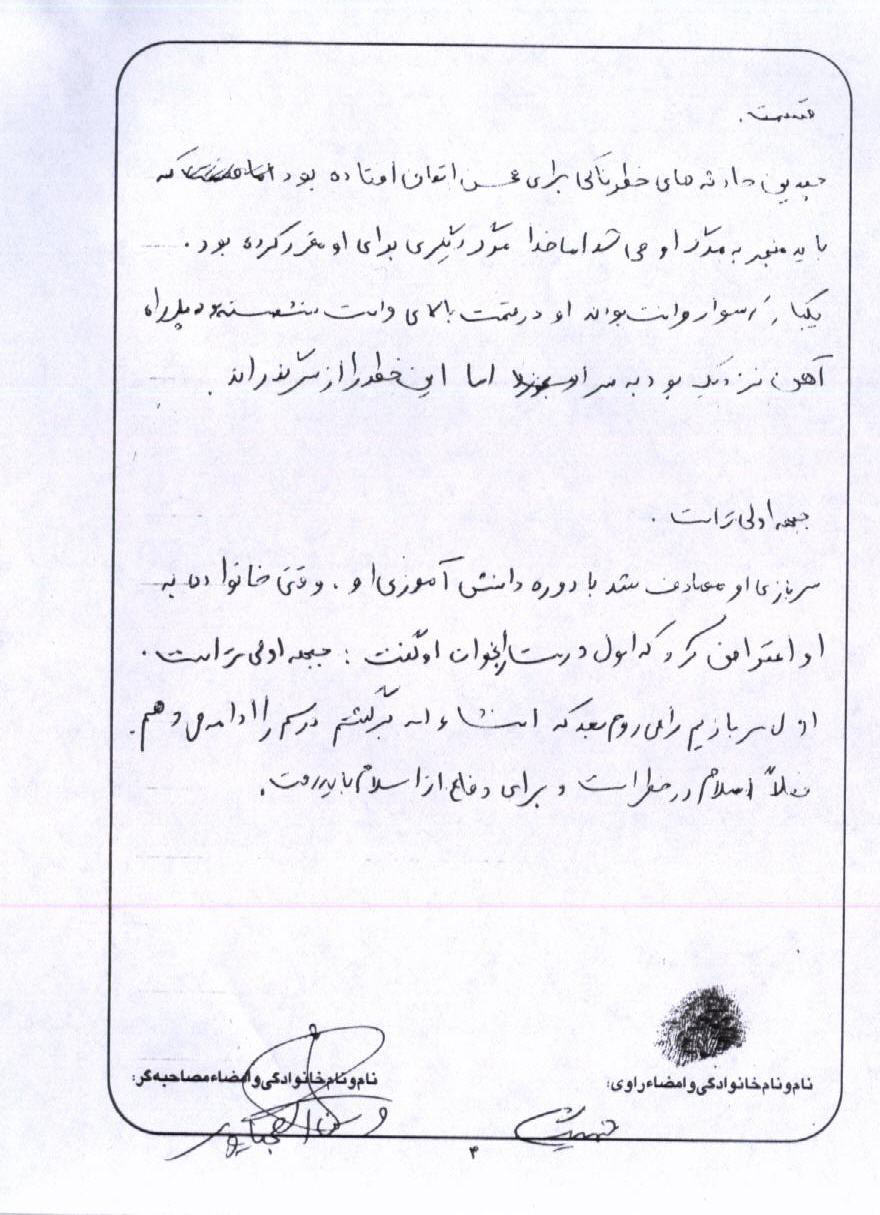 قسمت.
چندین حادثه های خطرناکی برای محسن اتفاق افتاده بود اما که
باید منجر به مرگ او می شد اما خدا مرگ دیگری برای او مقرر کرده بود.
یکبار سوار وانت بودند او در قسمت بالای وانت نشسته و پل راه
آهن نزدیک بود به سر او بخورد اما این خطر را از سر گذراند.
جبهه اولی تر است.
سربازی او مصادف شد با دوره دانش آموزی او. وقتی خانواده به
او اعتراض کرد که اول درست را بخوان او گفت: جبهه اولی تر است.
اول سربازیم را می روم بعد که انشاء اله برگشتم درسم را ادامه می دهم.
فعلاً اسلام در خطر است و برای دفاع از اسلام باید رفت.
نام و نام خانوادگی و امضاء راوی:
نام و نام خانوادگی و امضاء مصاحبه گر:
۴